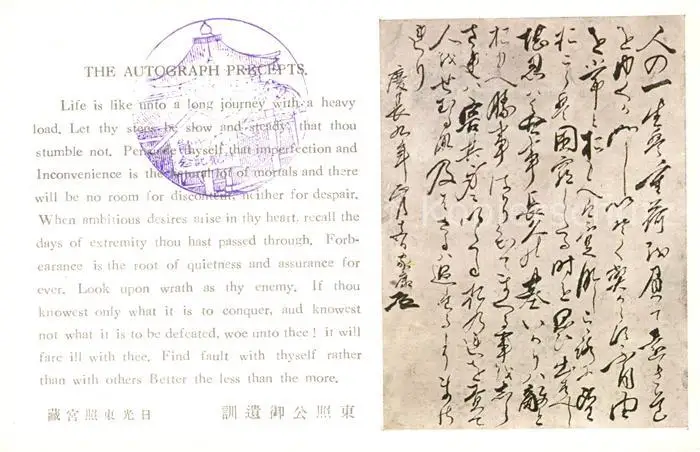 THE AUTOGRAPH PRECEPTS.
Life is like unto a long journey with a heavy
load. Let thy steps be slow and steady, that thou
stumble not. Persuade thyself that imperfection and
Inconvenience is the natural lot of mortals and there
will be no room for discontent, neither for despair.
When ambitious desires arise in thy heart, recall the
days of extremity thou hast passed through. Forb-
earance is the root of quietness and assurance for
ever. Look upon wrath as thy enemy. If thou
knowest only what it is to conquer, and knowest
not what it is to be defeated, woe unto thee! it will
fare ill with thee. Find fault with thyself rather
than with others Better the less than the more.
東照公御遺訓
日光東照宮藏
人の一生は重荷を負て遠き道
をゆくが如しいそぐべからず不自由
を常とおもへば不足なし心に望
おこらば困窮したる時を思ひ出すべし
堪忍は無事長久の基いかりハ敵と
おもへ勝事ばかり知てまくる事をしら
ざれば害其身にいたるおのれを責て
人をせむるな及ばざるハ過たるよりまさ
れり
慶長九年
家康